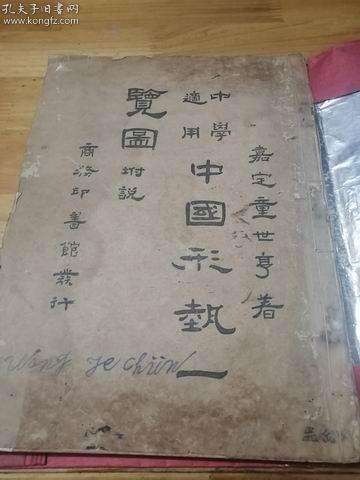 孔夫子旧书网
www.kongfz.com
嘉定童世亨著
中學
適用
中國形埶一
覽圖坿説
商務印書館發行